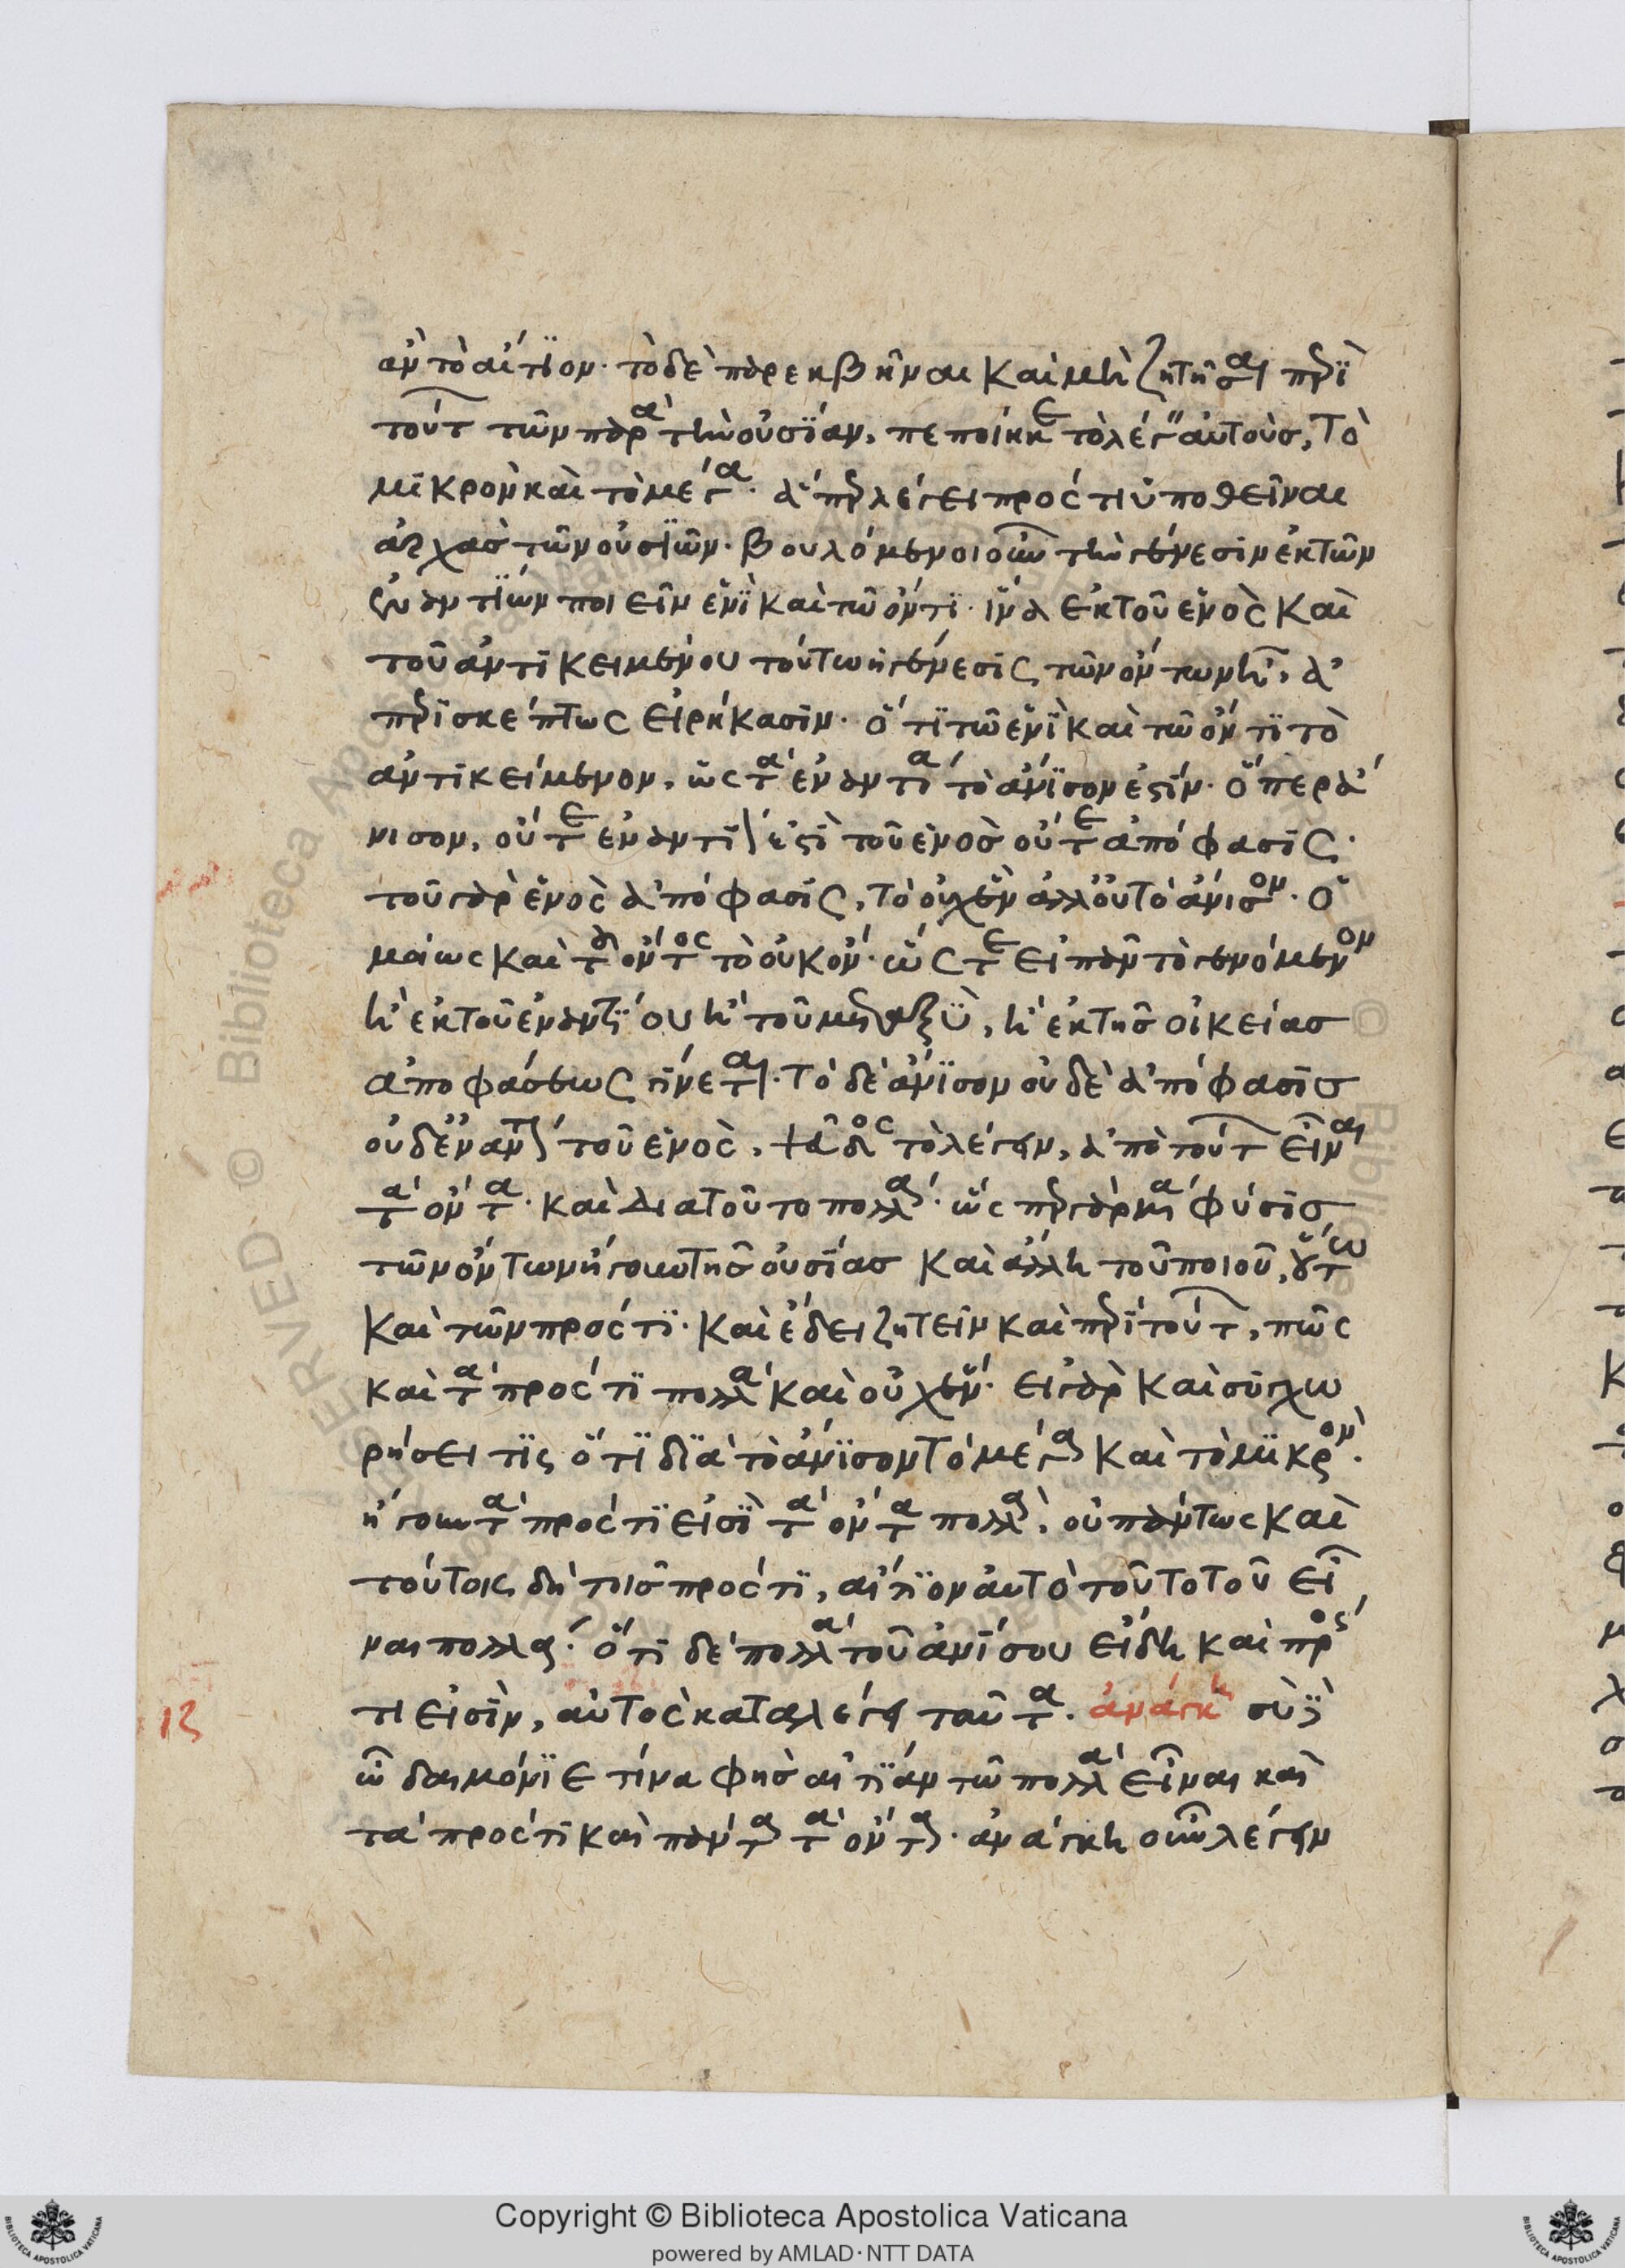 ἂν τὸ αἴτιον· τὸ δὲ παρεκβῆναι καὶ μὴ ζητῆσαι περὶ
τούτ τῶν παρὰ τὴν οὐσίαν, πεποίηκε τὸ λέγ αὐτοὺς, τὸ
μικρὸν καὶ τὸ μέγα· ἅπερ λέγει πρός τι ὑποθεῖναι
ἀρχὰς τῶν οὐσιῶν· βουλόμενοι οὖν τὴν γένεσιν ἐκ τῶν
ἐναντίων ποιεῖν ἑνὶ καὶ τῶ ὄντι· ἵνα ἐκ τοῦ ἑνὸς καὶ
τοῦ ἀντικειμένου τούτω ἡ γένεσις τῶν ὄντων ἦ, ἀ
περισκέπτως εἰρήκασιν· ὅτι τῶ ἑνὶ καὶ τῶ ὄντι τὸ
ἀντικείμενον, ὡς τὰ ἐναντία τὸ ἄνισον ἐστίν· ὅπερ ἄ
νισον, οὔτε ἐναντί ἐστὶ τοῦ ἑνὸς οὔτε ἀπόφασις·
τοῦ γὰρ ἑνὸς ἀπόφασις, τὸ οὐχ ἓν ἀλλ' οὐ τὸ ἄνισον· ὁ
μοίως καὶ τοῦ ὄντος τὸ οὐκ ὄν· ὥστε εἰ πᾶν τὸ γενόμενον
ἢ ἐκ τοῦ ἐναντίου ἢ τοῦ μεταξὺ, ἢ ἐκ τῆς οἰκείας
ἀποφάσεως γίνεται· τὸ δὲ ἄνισον οὐδὲ ἀπόφασις
οὐδ' ἐναντί τοῦ ἑνὸς, ψεῦδος τὸ λέγειν, ἀπὸ τούτ εἶναι
τὰ ὄντα· καὶ διατοῦτο πολλά· ὡς περ γὰρ μία φύσις
τῶν ὄντων ἤγουν τῆς οὐσίας καὶ ἄλλη τοῦ ποιοῦ, οὕτω
καὶ τῶν πρός τι· καὶ ἔδει ζητεῖν καὶ περὶ τούτ, πῶς
καὶ τὰ πρός τι πολλὰ καὶ οὐχ ἕν· εἰ γὰρ καὶ συγχω
ρήσει τὶς ὅτι διὰ τὸ ἄνισον τὸ μέγα καὶ τὸ μικρὸν·
ἤγουν τὰ πρός τι εἰσὶ τὰ ὄντα πολλὰ, οὐ πάντως καὶ
τούτοις δὴ τοῖς πρός τι, αἴτιον αὐτὸ τοῦτο τοῦ εἶ
ναι πολλά· ὅτι δὲ πολλὰ τοῦ ἀνίσου εἴδη καὶ πρός
τι εἰσὶν, αὐτὸς καταλέγει ταῦτα· ἀνάγκη
ὦ δαιμόνιε τίνα φῂς αἰτίαν τῶ πολλὰ εἶναι καὶ
τὰ πρός τι καὶ πάντα τὰ ὄντα· ἀνάγκη οὖν λέγειν
Copyright © Biblioteca Apostolica Vaticana
powered by AMLAD·NTT DATA